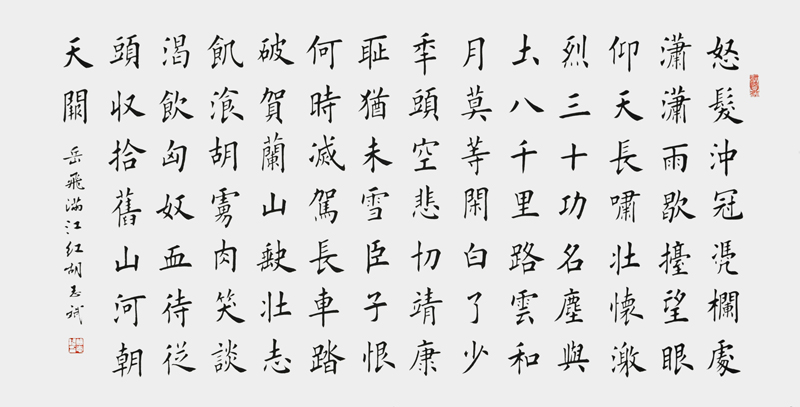 怒髮沖冠凴欄處
瀟瀟雨歇擡望眼
仰天長嘯壯懷激
烈三十功名塵與
土八千里路雲和
月莫等閑白了少
年頭空悲切靖康
耻猶未雪臣子恨
何時滅駕長車踏
破賀蘭山缺壯志
飢飡胡虜肉笑談
渴飲匈奴血待從
頭收拾舊山河朝
天闕
岳飛滿江紅胡志斌